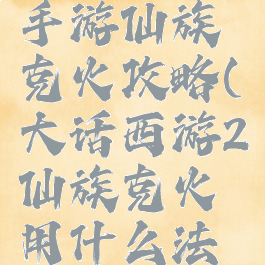 手游仙族
克火攻略(
大话西游2
仙族克火
用什么法